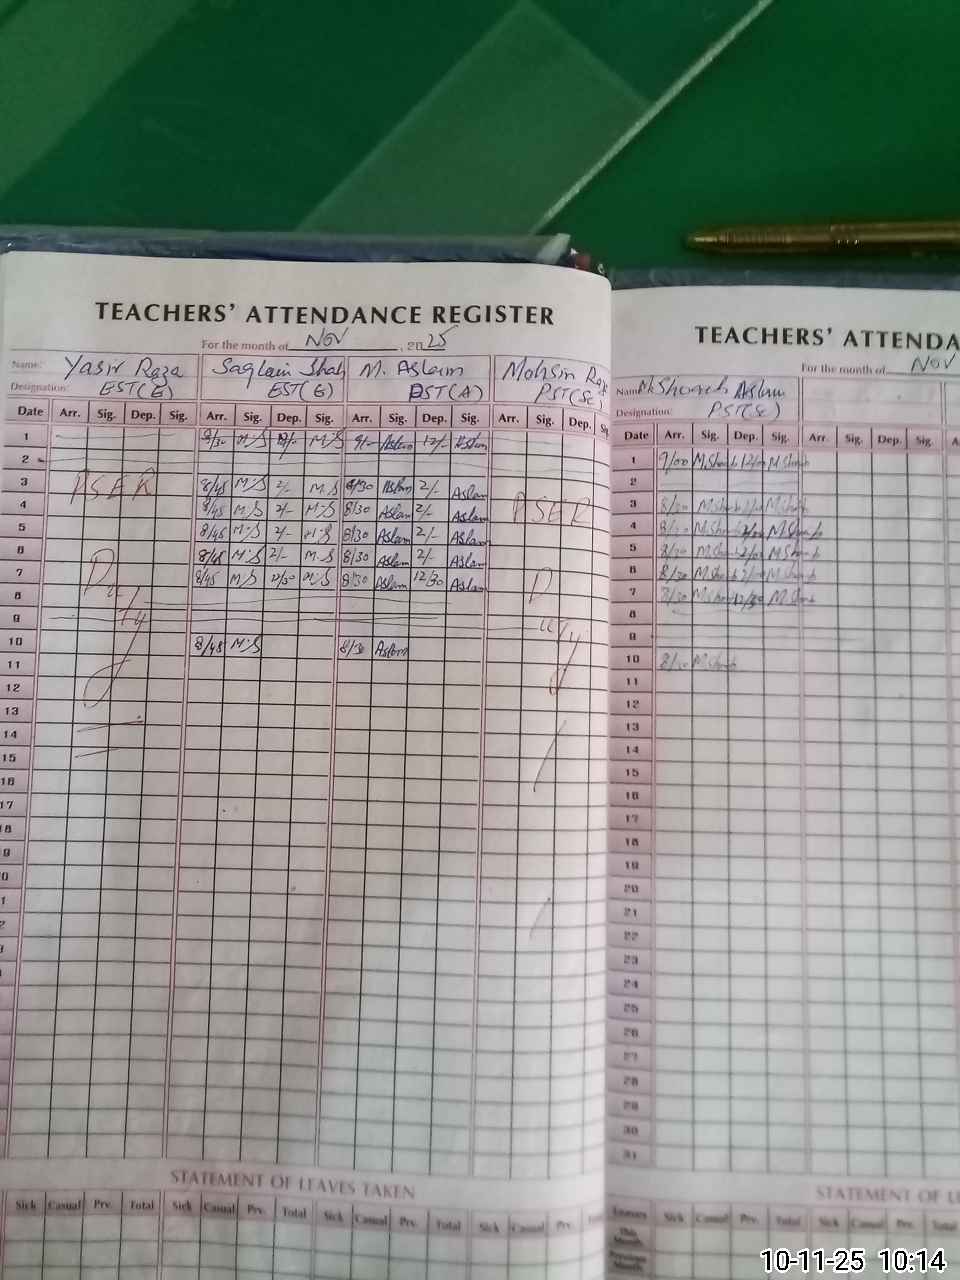 TEACHERS' ATTENDANCE REGISTER
For the month of NOV , 2025
Name: Yasir Raza Saqlain Shah M. Aslam Mohsin Raza
Designation: EST(E) EST(E) PST(A) PST(SE)
Date Arr. Sig. Dep. Sig. Arr. Sig. Dep. Sig. Arr. Sig. Dep. Sig. Arr. Sig. Dep. Sig
1 8/30 M·S M·S 9/- Aslam 12/- Aslam
2
3 PSER 8/45 M·S 2/- M·S 8/30 Aslam 2/- Aslam PSER
4 8/45 M·S 2/- M·S 8/30 Aslam 2/- Aslam
5 8/45 M·S 2/- M·S 8/30 Aslam 2/- Aslam
6 8/45 M·S 2/- M·S 8/30 Aslam 2/- Aslam
7 Duty 8/45 M·S 12/30 M·S 8/30 Aslam 12/30 Aslam Duty
8
9
10 8/45 M·S 8/30 Aslam
11
12
13
14
15
16
17
18
9
0
1
2
STATEMENT OF LEAVES TAKEN
Sick Casual Prv. Total Sick Casual Prv. Total Sick Casual Prv. Total Sick Casual Prv.
TEACHERS' ATTENDA
For the month of NOV
Name: M Shoaib Aslam
Designation: PST(SE)
Date Arr. Sig. Dep. Sig. Arr. Sig. Dep. Sig.
1 9/00 M.Shoaib 12/00 M.Shoaib
2
3 8/30 M.Shoaib M.Shoaib
4 8/30 M.Shoaib 2/00 M.Shoaib
5 8/30 M.Shoaib 2/00 M.Shoaib
6 8/30 M.Shoaib 2/00 M.Shoaib
7 8/30 M.Shoaib 12/30 M.Shoaib
8
9
10 8/30 M.Shoaib
11
12
13
14
15
16
17
18
19
20
21
22
23
24
25
26
27
28
29
30
31
STATEMENT OF LE
Leaves Sick Casual Prv. Total Sick Casual Prv. Total
This Month
Previous Month
10-11-25 10:14